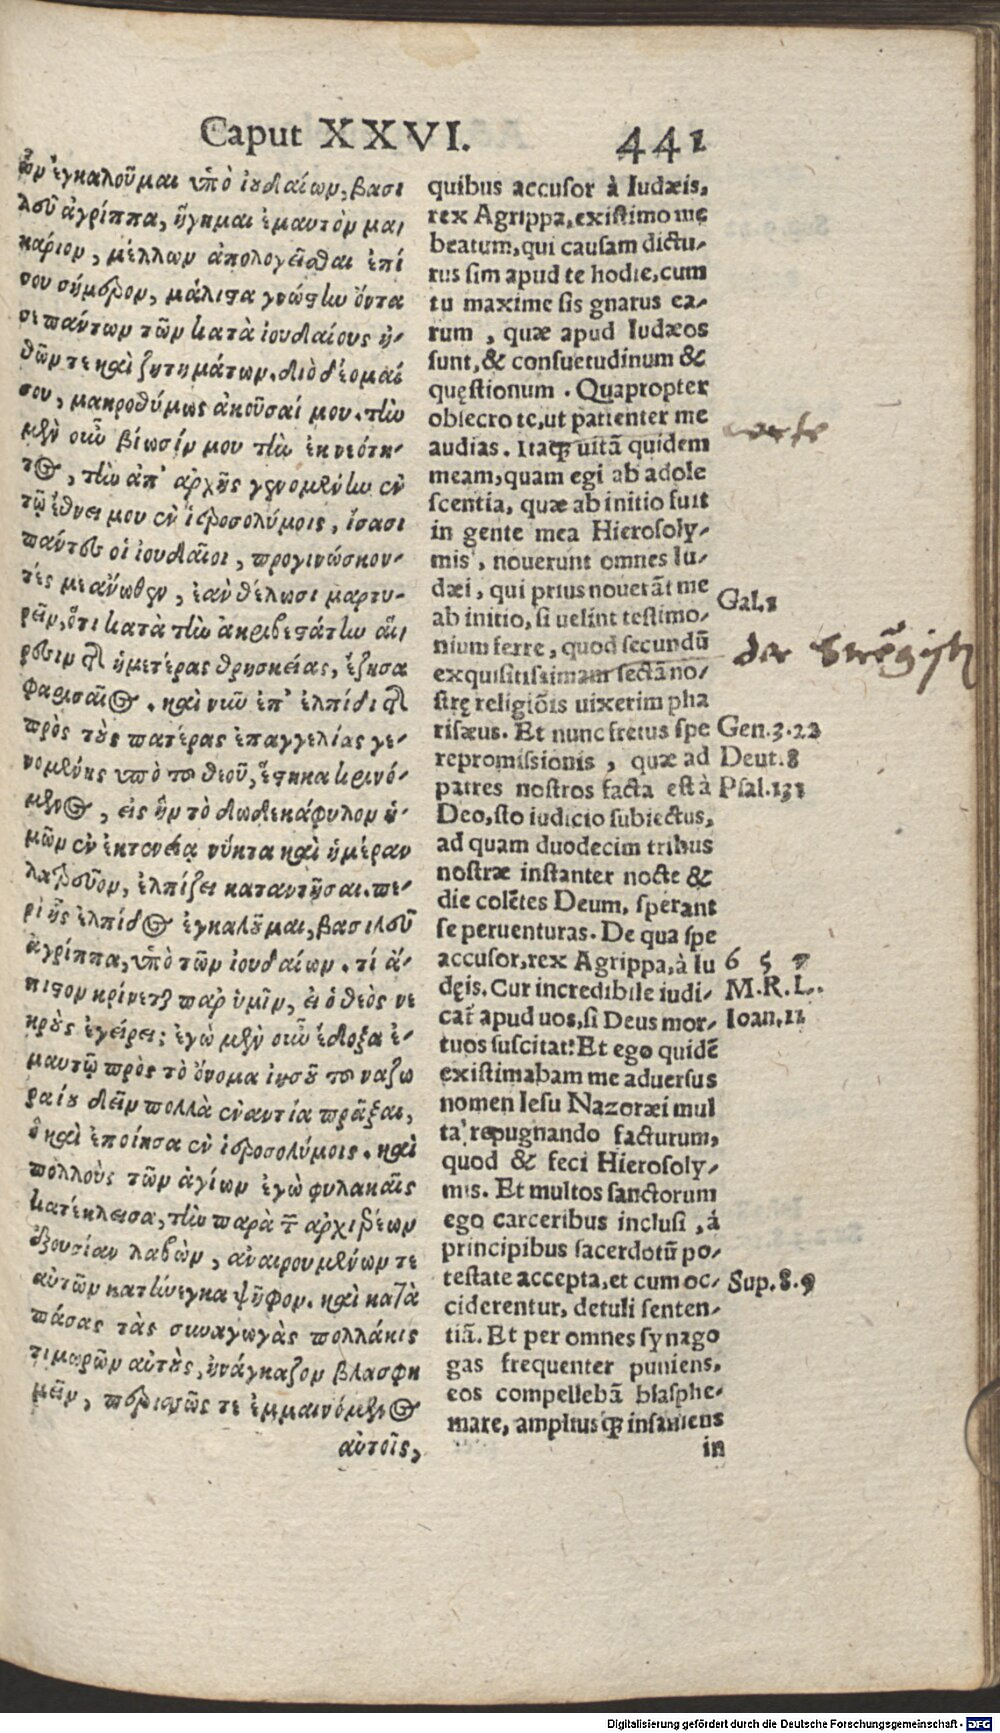 Caput XXVI. 441
ὧν ἐγκαλοῦμαι ὑπὸ ἰουδαίων, βασι
λεῦ ἀγρίππα, ἥγημαι ἐμαυτὸν μα
κάριον, μέλλων ἀπολογεῖσθαι ἐπί
σου σήμερον, μάλιστα γνώστην ὄντα
σε πάντων τῶν κατὰ ἰουδαίους ἠ-
θῶν τε καὶ ζητημάτων. διὸ δέομαί
σου, μακροθύμως ἀκοῦσαί μου. τὴν
μὲν οὖν βίωσίν μου τὴν ἐκ νεότη-
τος, τὴν ἀπ' ἀρχῆς γενομένην ἐν
τῷ ἔθνει μου ἐν ἱεροσολύμοις, ἴσασι
πάντες οἱ ἰουδαῖοι, προγινώσκον-
τές με ἄνωθεν, ἐὰν θέλωσι μαρτυ-
ρεῖν, ὅτι κατὰ τὴν ἀκριβεστάτην αἵ
ρεσιν τῆς ἡμετέρας θρησκείας, ἔζησα
φαρισαῖος. καὶ νῦν ἐπ' ἐλπίδι τῆς
πρὸς τοὺς πατέρας ἐπαγγελίας γε-
νομένης ὑπὸ τοῦ θεοῦ, ἕστηκα κρινό-
μενος, εἰς ἣν τὸ δωδεκάφυλον ἡ-
μῶν ἐν ἐκτενείᾳ νύκτα καὶ ἡμέραν
λατρεῦον, ἐλπίζει καταντῆσαι. πε-
ρὶ ἧς ἐλπίδος ἐγκαλοῦμαι, βασιλεῦ
ἀγρίππα, ὑπὸ τῶν ἰουδαίων. τί ἄ-
πιστον κρίνεται παρ' ὑμῖν, εἰ ὁ θεὸς νε
κροὺς ἐγείρει; ἐγὼ μὲν οὖν ἔδοξα ἐ-
μαυτῷ πρὸς τὸ ὄνομα ἰησοῦ τοῦ ναζω
ραίου δεῖν πολλὰ ἐναντία πρᾶξαι,
ὃ καὶ ἐποίησα ἐν ἱεροσολύμοις. καὶ
πολλοὺς τῶν ἁγίων ἐγὼ φυλακαῖς
κατέκλεισα, τὴν παρὰ τ̃ ἀρχιερέων
ἐξουσίαν λαβὼν, ἀναιρουμένων τε
αὐτῶν κατήνεγκα ψῆφον. καὶ κατὰ
πάσας τὰς συναγωγὰς πολλάκις
τιμωρῶν αὐτοὺς, ἠνάγκαζον βλασφη
μεῖν, περισσῶς τε ἐμμαινόμενος
αὐτοῖς,
quibus accusor à Iudæis,
rex Agrippa, existimo me
beatum, qui causam dictu-
rus sim apud te hodie, cum
tu maxime sis gnarus ea-
rum, quæ apud Iudæos
sunt, & consuetudinum &
quęstionum. Quapropter
obsecro te, ut patienter me
audias. Itaq; uitã quidem
meam, quam egi ab adole
scentia, quæ ab initio fuit
in gente mea Hierosoly-
mis, nouerunt omnes Iu-
dæi, qui prius nouerãt me
ab initio, si uelint testimo-
nium ferre, quod secundũ
exquisitissimam sectã no-
strę religiõis uixerim pha
risæus. Et nunc fretus spe
repromissionis, quæ ad
patres nostros facta est à
Deo, sto iudicio subiectus,
ad quam duodecim tribus
nostræ instanter nocte &
die colẽtes Deum, sperant
se peruenturas. De qua spe
accusor, rex Agrippa, à Iu
dęis. Cur incredibile iudi-
cat̃ apud uos, si Deus mor-
tuos suscitat? Et ego quidẽ
existimabam me aduersus
nomen Iesu Nazoræi mul
ta repugnando facturum,
quod & feci Hierosoly-
mis. Et multos sanctorum
ego carceribus inclusi, à
principibus sacerdotũ po-
testate accepta, et cum oc-
ciderentur, detuli senten-
tiã. Et per omnes synago
gas frequenter puniens,
eos compellebã blasphe-
mare, amplius q; insaniens
in
Gal. 1
der
Gen. 3. 22
Deut. 8
Psal. 131
6 5 7
M. R. L.
Ioan. 11
Sup. 8. 9
Digitalisierung gefördert durch die Deutsche Forschungsgemeinschaft - DFG